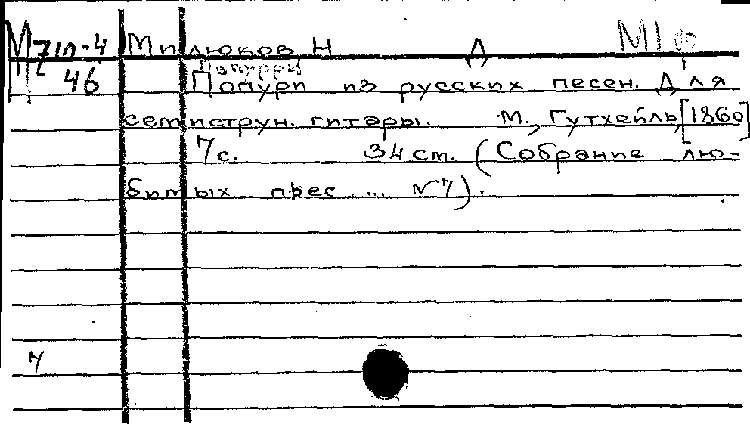 М 710-4 Милюков Н Д
46 Попурри
Попури из русских песен. Для
семиструн. гитары. М., Гутхейль, [1860]
7 с. 34 см. (Собрание лю-
бимых пьес ... № 7).
7